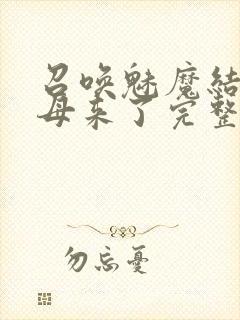 召唤魅魔结
母来了完整
勿忘憂